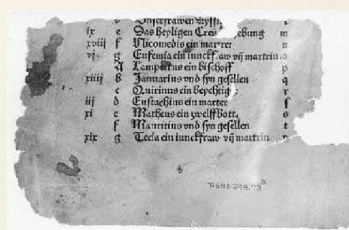 ix e Das heyligen Creu ebung m
xviij f Nicomedis ein martrer n
vj g Eufemia ein iunckfraw vñ martrin o
A Lampertus ein bischoff p
xiiij b Januarius vnd syn gesellen q
c Quirinus ein
iij d Eustachius ein marter s
xi e Matheus ein zwelffbott s
f Mauritius vnd syn gesellen t
xix g Tecla ein iunckfraw vñ martrin v